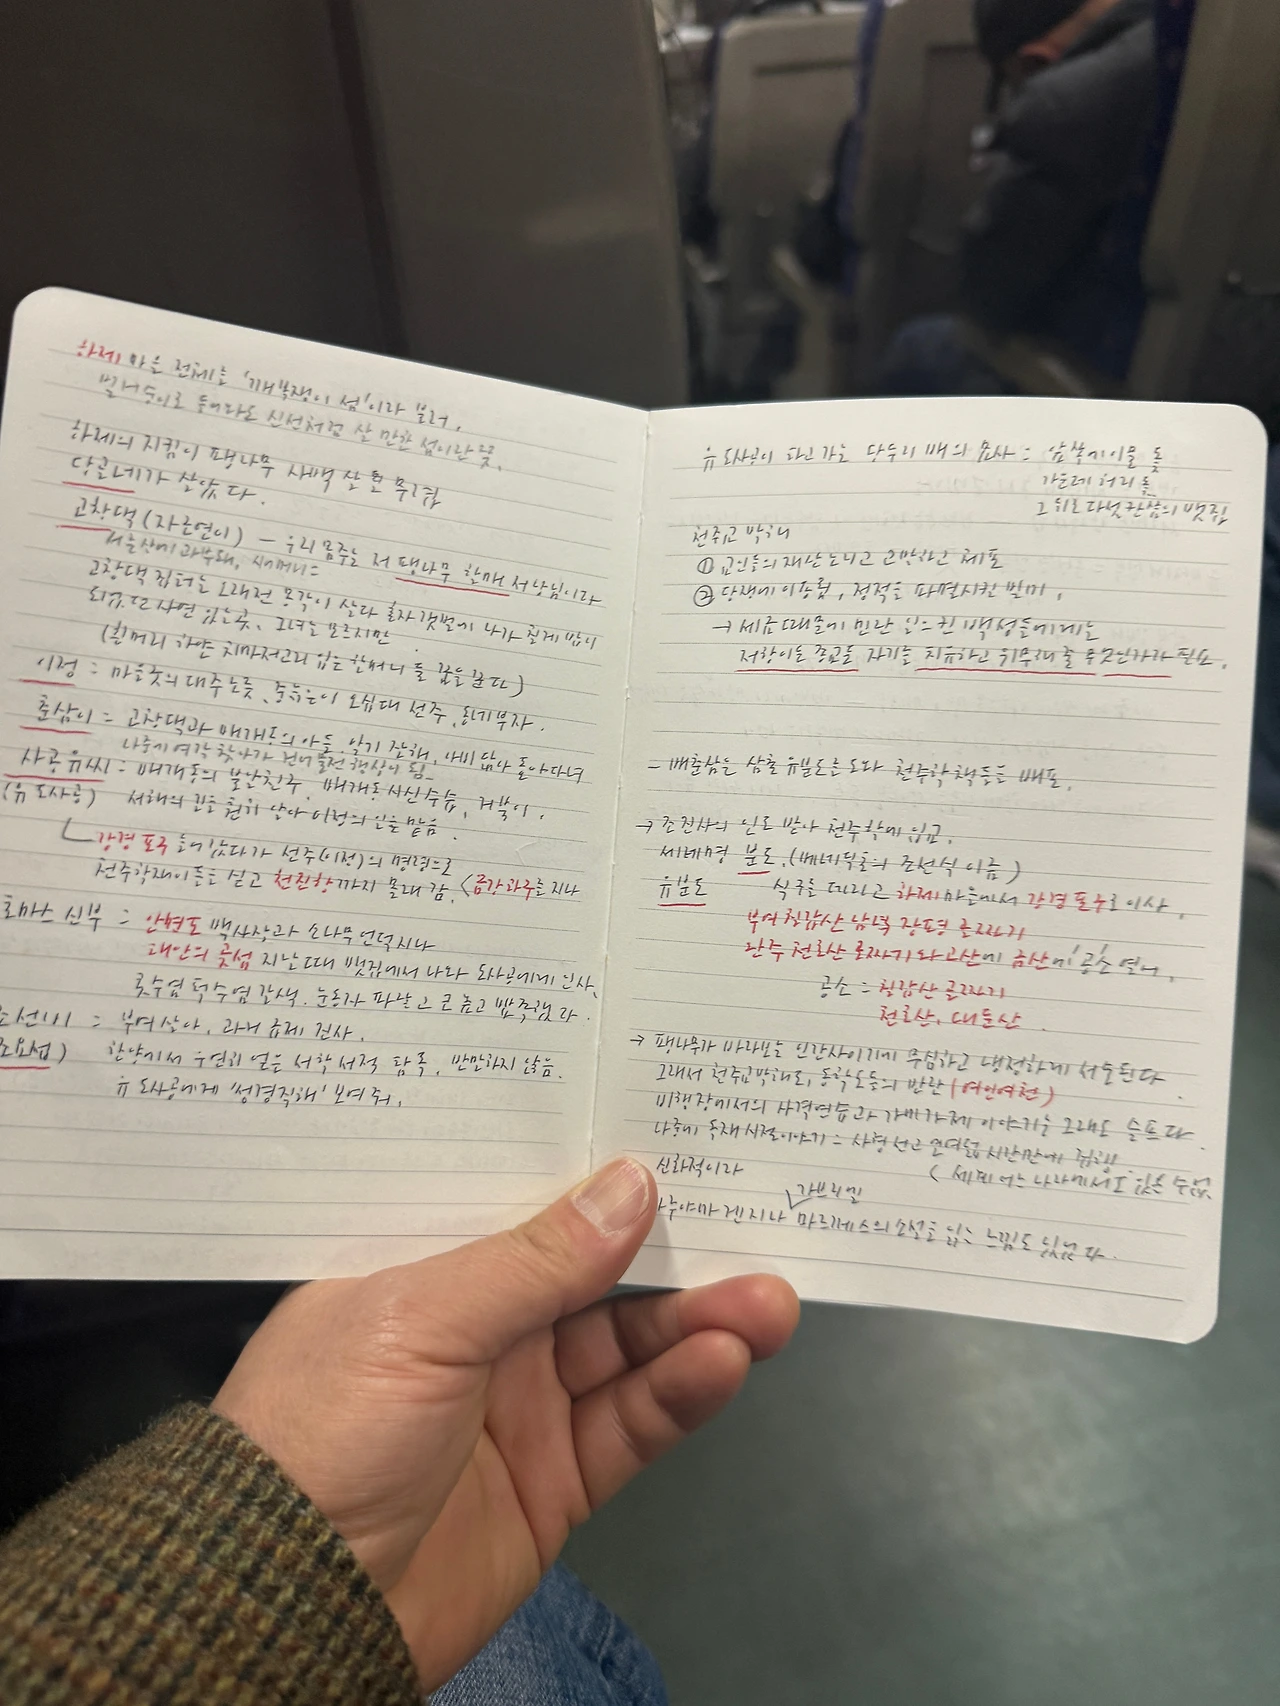 하제 마을 전체는 '개복쟁이 섬'이라 불러,
벌거숭이로 들어와도 신선처럼 살 만한 섬이란 뜻.
하제의 지킴이 팽나무 사백 살
당골네가 살았다.
고창댁 (자근연이) — 우리 몸주는 저 팽나무 할매 서낭님이라
고창댁 집터는 오래전 몽각이 살다 홀자 갯벌에 나가 칠게 밥이
되었던 사연 있는 곳, 그녀는 모르지만
(흰머리 하얀 치마저고리 입은 할머니 들 꿈을 꾼다)
이정 = 마을굿의 대주 노릇, 중늙은이 오십대 선주, 동네부자.
춘삼이 = 고창댁과 배개동의 아들, 알기 잘해, 아비 닮아 돌아다녀
나중에 여각 찾아가 건어물전 행상이 됨
사공유씨 = 배개동의 불알친구, 배개동 시신 수습, 거북이.
(유 도사공) 서해의 길을 훤히 알아 이정의 일을 맡음.
강경 포구 숨어 갔다가 선주(이정)의 명령으로
천주학쟁이들을 싣고 천진항까지 몰래 감. <금강 하구를 지나
토마스 신부 = 안면도 백사장과 소나무 언덕 지나
태안의 곶섬 지날 때 뱃집에서 나와 도사공에게 인사,
콧수염 턱수염 갈색, 눈동자 파랗고 코 높고 뾰족했다.
조선비 = 부여 살아, 과거 급제 진사.
조요섭) 한양에서 우연히 얻은 서학 서적 탐독, 반만하지 않음.
유 도사공에게 '성경직해' 보여줘.
유 도사공이 타고 가는 당두리 배의 묘사 = 앞쪽에 이물 돛
가운데 허리 돛
그 뒤로 다섯 칸 남짓의 뱃집
천주교 박해
① 교인들의 재산 노리고 모반하고 체포
② 당쟁에 이용됨, 정적을 파멸시킨 빌미.
→ 세금 때문에 민란 일으킨 백성들에게는
저항이든 종교든 자기를 치유하고 위무해 줄 무엇인가가 필요.
- 배춘삼은 삼촌 유분도를 도와 천주학 책들을 배포.
→ 조진사의 인도 받아 천주학에 입교.
세례명 분도. (베네딕토의 조선식 이름)
유분도 식구를 데리고 하제마을에서 강경 포구로 이사,
부여 칠갑산 남녘 장평 골짜기
완주 천호산 골짜기와 고산에 금산에 '공소' 열어,
공소 = 칠갑산 골짜기
천호산, 대둔산.
→ 팽나무가 바라보는 인간사이기에 무심하고 냉정하게 서술된다
그래서 천주교박해도, 동학도들의 반란 (여인여천)
비행장에서의 사격연습과 가미가제 이야기는 그래도 슬프다
나중에 독재시절이야기 = 사형 선고 열여덟 시간만에 집행
< 세계 어느 나라에서도 없는 수업.
신화적이라
가브리엘
마루야마 겐지나 마르케스의 소설을 읽는 느낌도 있었다.